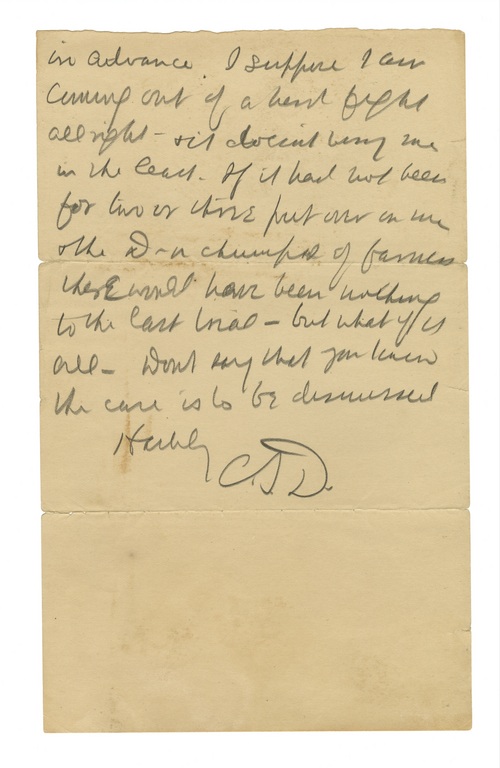 in advance. I suppose I am
coming out of a hard fight
all right - & it doesn't worry me
in the least. If it had not been
for two or three put over on me
& the D-n of fairness
there would have been nothing
to the last trial - but what of it
all - Don't say that you know
the case is to be dismissed
Hastily
C.S.D.